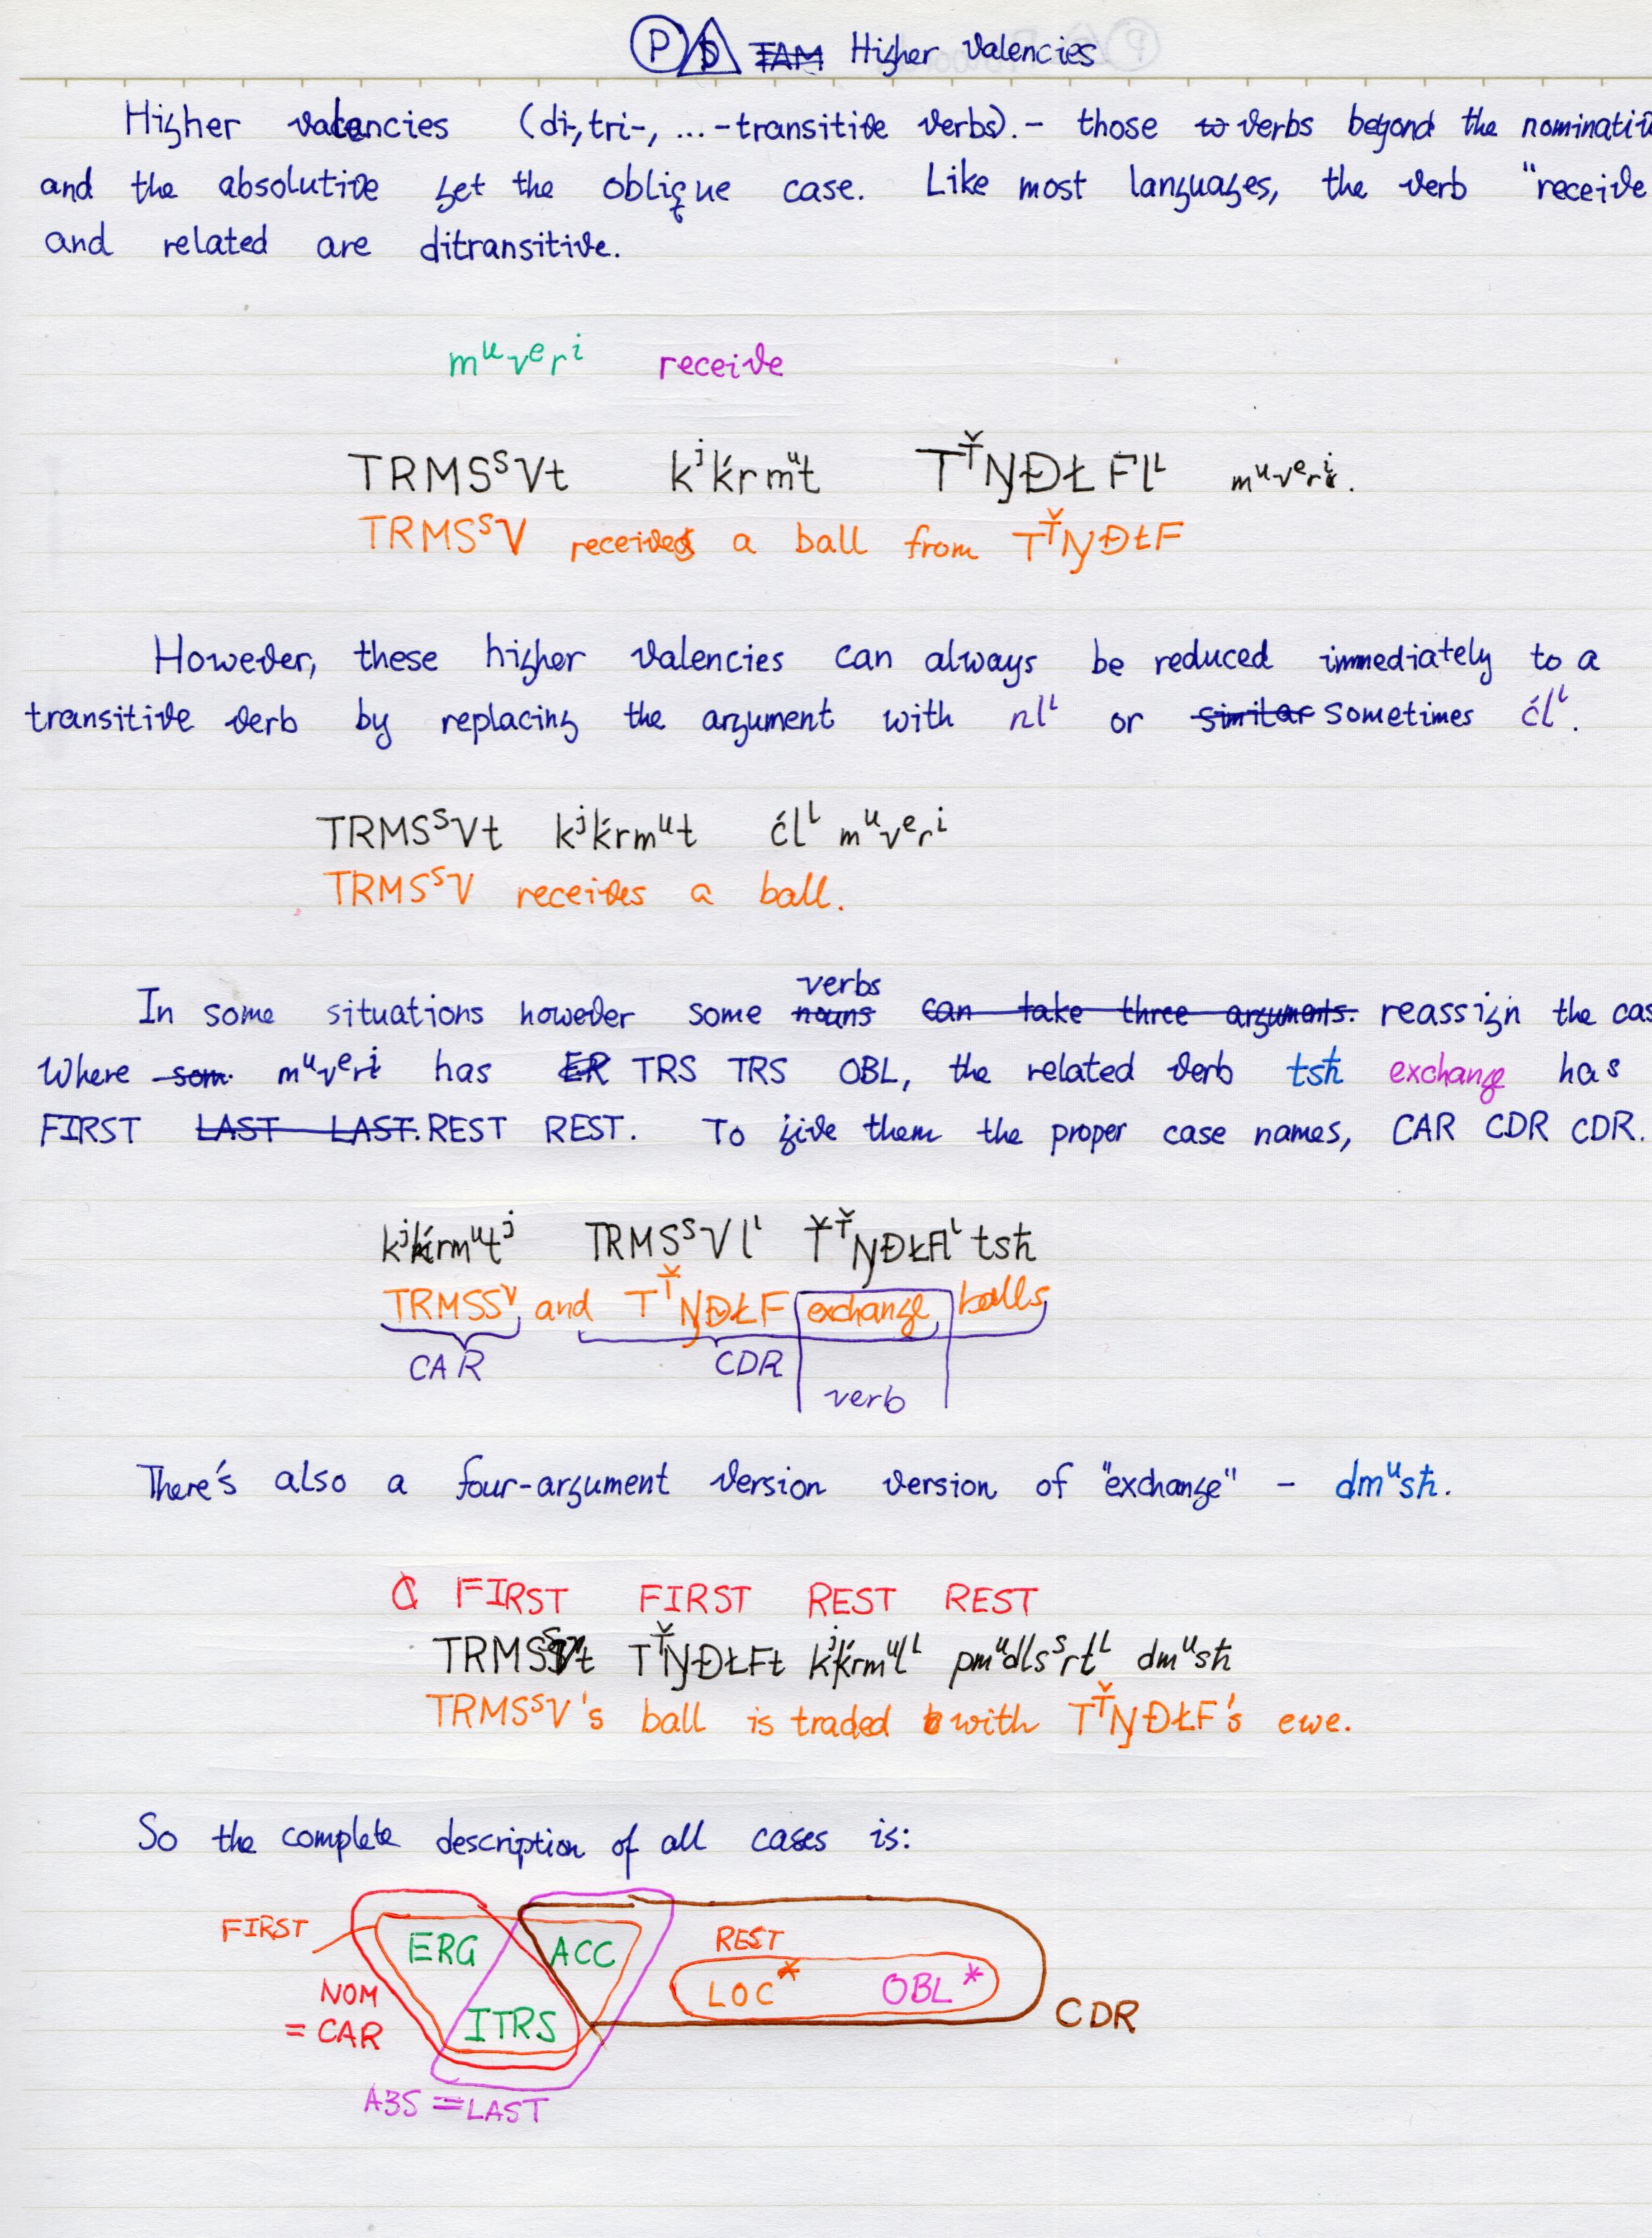 P Higher Valencies
Higher valencies (di-, tri-, ... -transitive verbs). - those verbs beyond the nominativ
and the absolutive get the oblique case. Like most languages, the verb "receive
and related are ditransitive.
mᵘvᵉrⁱ receive
TRMSˢVt kʲḱrmᵘt TŤŊĐŁFlᴸ mᵘvᵉrⁱ.
TRMSˢV receives a ball from TŤŊĐŁF
However, these higher valencies can always be reduced immediately to a
transitive verb by replacing the argument with nlᴸ or similar sometimes ćlᴸ.
TRMSˢVt kʲḱrmᵘt ćlᴸ mᵘvᵉrⁱ
TRMSˢV receives a ball.
verbs
In some situations however some nouns can take three arguments. reassign the cas
Where som. mᵘvᵉrⁱ has ER TRS TRS OBL, the related verb tsħ exchange has
FIRST LAST LAST. REST REST. To give them the proper case names, CAR CDR CDR.
kʲḱrmᵘtʲ TRMSˢVlᴸ ŤŤŊĐŁFlᴸ tsħ
TRMSSV and TŤŊĐŁF exchange balls
CAR CDR
verb
There's also a four-argument version version of "exchange" - dmᵘsħ.
FIRST FIRST REST REST
TRMSˢVt TŤŊĐŁFt kʲḱrmᵘlᴸ pmᵘdlsˢrtᴸ dmᵘsħ
TRMSˢV's ball is traded with TŤŊĐŁF's ewe.
So the complete description of all cases is:
FIRST ERG ACC REST
NOM LOC* OBL*
= CAR ITRS CDR
ABS = LAST